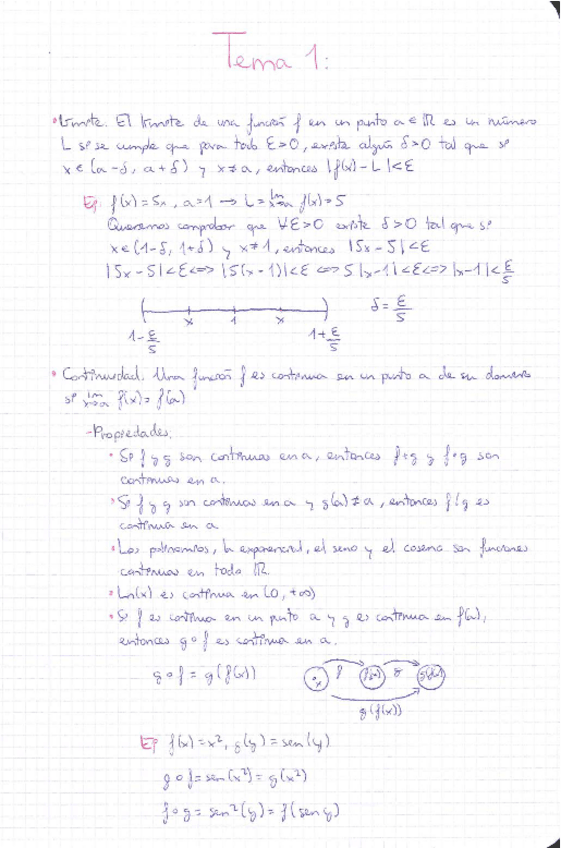 Tema 1:
• Límite. El límite de una función f en un punto a ∈ ℝ es un número
L si se cumple que para todo ε>0, existe algún δ>0 tal que si
x ∈ (a-δ, a+δ) y x≠a, entonces |f(x)-L|<ε
Ej: f(x)=5x, a=1 → L=lim x→a f(x)=5
Queremos comprobar que ∀ε>0 existe δ>0 tal que si
x∈(1-δ, 1+δ) y x≠1, entonces |5x-5|<ε
|5x-5|<ε <=> |5(x-1)|<ε <=> 5|x-1|<ε <=> |x-1|<ε/5
x 1 x
1-ε/5 1+ε/5 δ=ε/5
• Continuidad. Una función f es continua en un punto a de su dominio
si lim x→a f(x)=f(a)
-Propiedades:
• Si f y g son continuas en a, entonces f+g y f·g son
continuas en a.
• Si f y g son continuas en a y g(a)≠a, entonces f/g es
continua en a
• Los polinomios, la exponencial, el seno y el coseno son funciones
continuas en todo ℝ.
• Ln(x) es continua en (0, +∞)
• Si f es continua en un punto a y g es continua en f(a),
entonces g∘f es continua en a.
g∘f = g(f(x))
x f f(x) g g(f(x))
g(f(x))
Ej f(x)=x², g(y)=sen(y)
g∘f=sen(x²)=g(x²)
f∘g=sen²(y)=f(sen y)